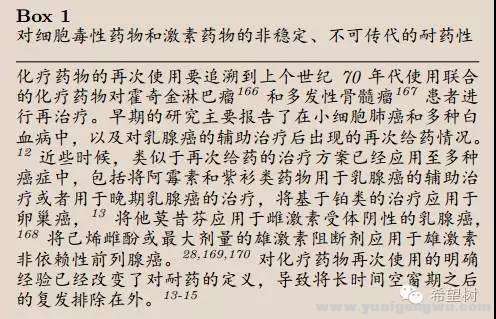 Box 1
对细胞毒性药物和激素药物的非稳定、不可传代的耐药性
化疗药物的再次使用要追溯到上个世纪 70 年代使用联合
的化疗药物对霍奇金淋巴瘤166 和多发性骨髓瘤167 患者进
行再治疗。早期的研究主要报告了在小细胞肺癌和多种白
血病中,以及对乳腺癌的辅助治疗后出现的再次给药情况。
12 近些时候,类似于再次给药的治疗方案已经应用至多种
癌症中,包括将阿霉素和紫衫类药物用于乳腺癌的辅助治
疗或者用于晚期乳腺癌的治疗,将基于铂类的治疗应用于
卵巢癌,13 将他莫昔芬应用于雌激素受体阴性的乳腺癌,
168 将己烯雌酚或最大剂量的雄激素阻断剂应用于雄激素
非依赖性前列腺癌。28,169,170 对化疗药物再次使用的明确
经验已经改变了对耐药的定义,导致将长时间空窗期之后
的复发排除在外。13-15
希望树